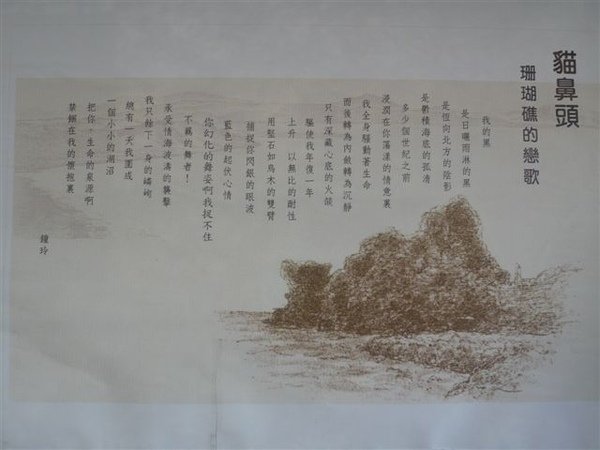 貓鼻頭
珊瑚礁的戀歌
我的黑
是日曬雨淋的黑
是恆向北方的陰影
是鬱積海底的孤清
多少個世紀之前
浸潤在你蕩漾的情意裏
我全身騷動著生命
而後轉為內斂轉為沉靜
只有深藏心底的火燄
驅使我年復一年
上升 以無比的耐性
用堅石如烏木的雙臂
捕捉你閃銀的眼波
藍色的起伏心情
你幻化的舞姿啊我捉不住
不羈的舞者!
承受情海波濤的襲擊
我只餘下一身的嶙峋
總有一天我圍成
一個小小的湖沼
把你、生命的泉源啊
禁錮在我的懷抱裏
鐘玲